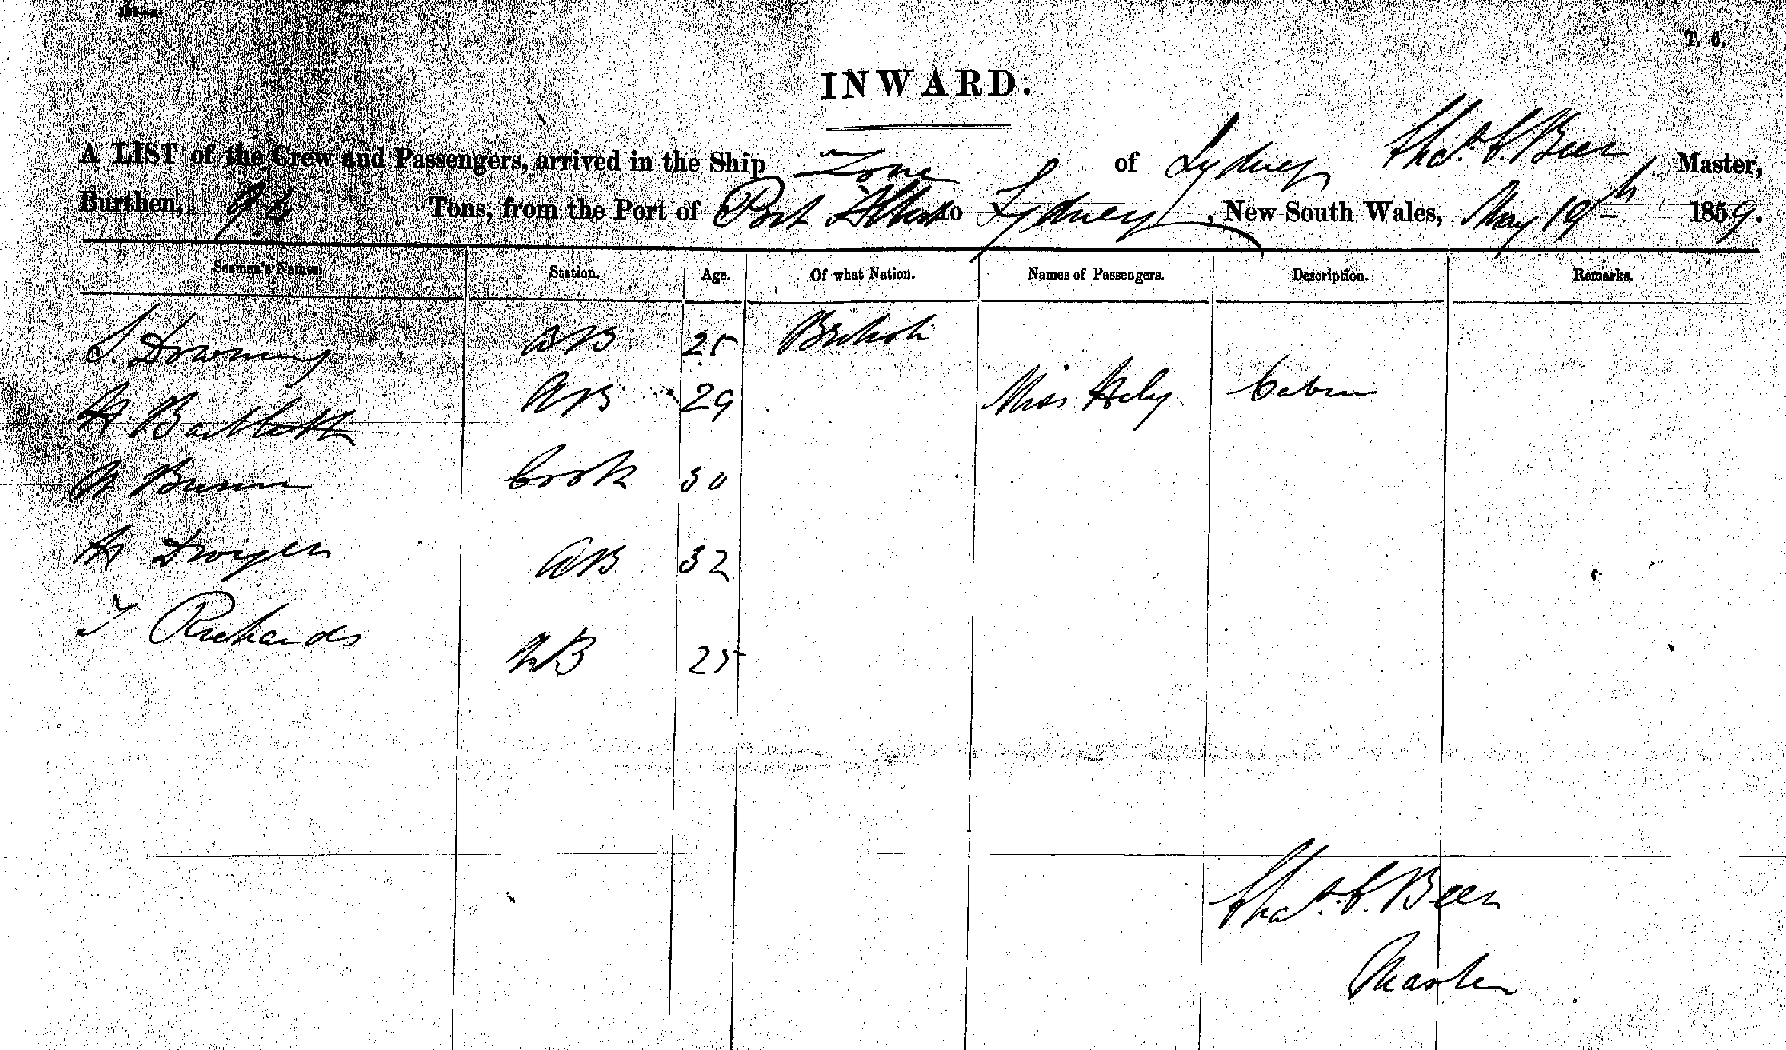 T. 6.
INWARD.
A LIST of the Crew and Passengers, arrived in the Ship Zone of Sydney Chas. C. Beer Master,
Burthen, Tons, from the Port of Port Albert to Sydney, New South Wales, May 19th 1859.
Seamen's Names. Station. Age. Of what Nation. Names of Passengers. Description. Remarks.
S Downing AB 25 British
H Bartlett AB 29 Miss Hely Cabin
Burns Cook 30
Dwyer AB 32
T Richards AB 25
Chas. C. Beer
Master